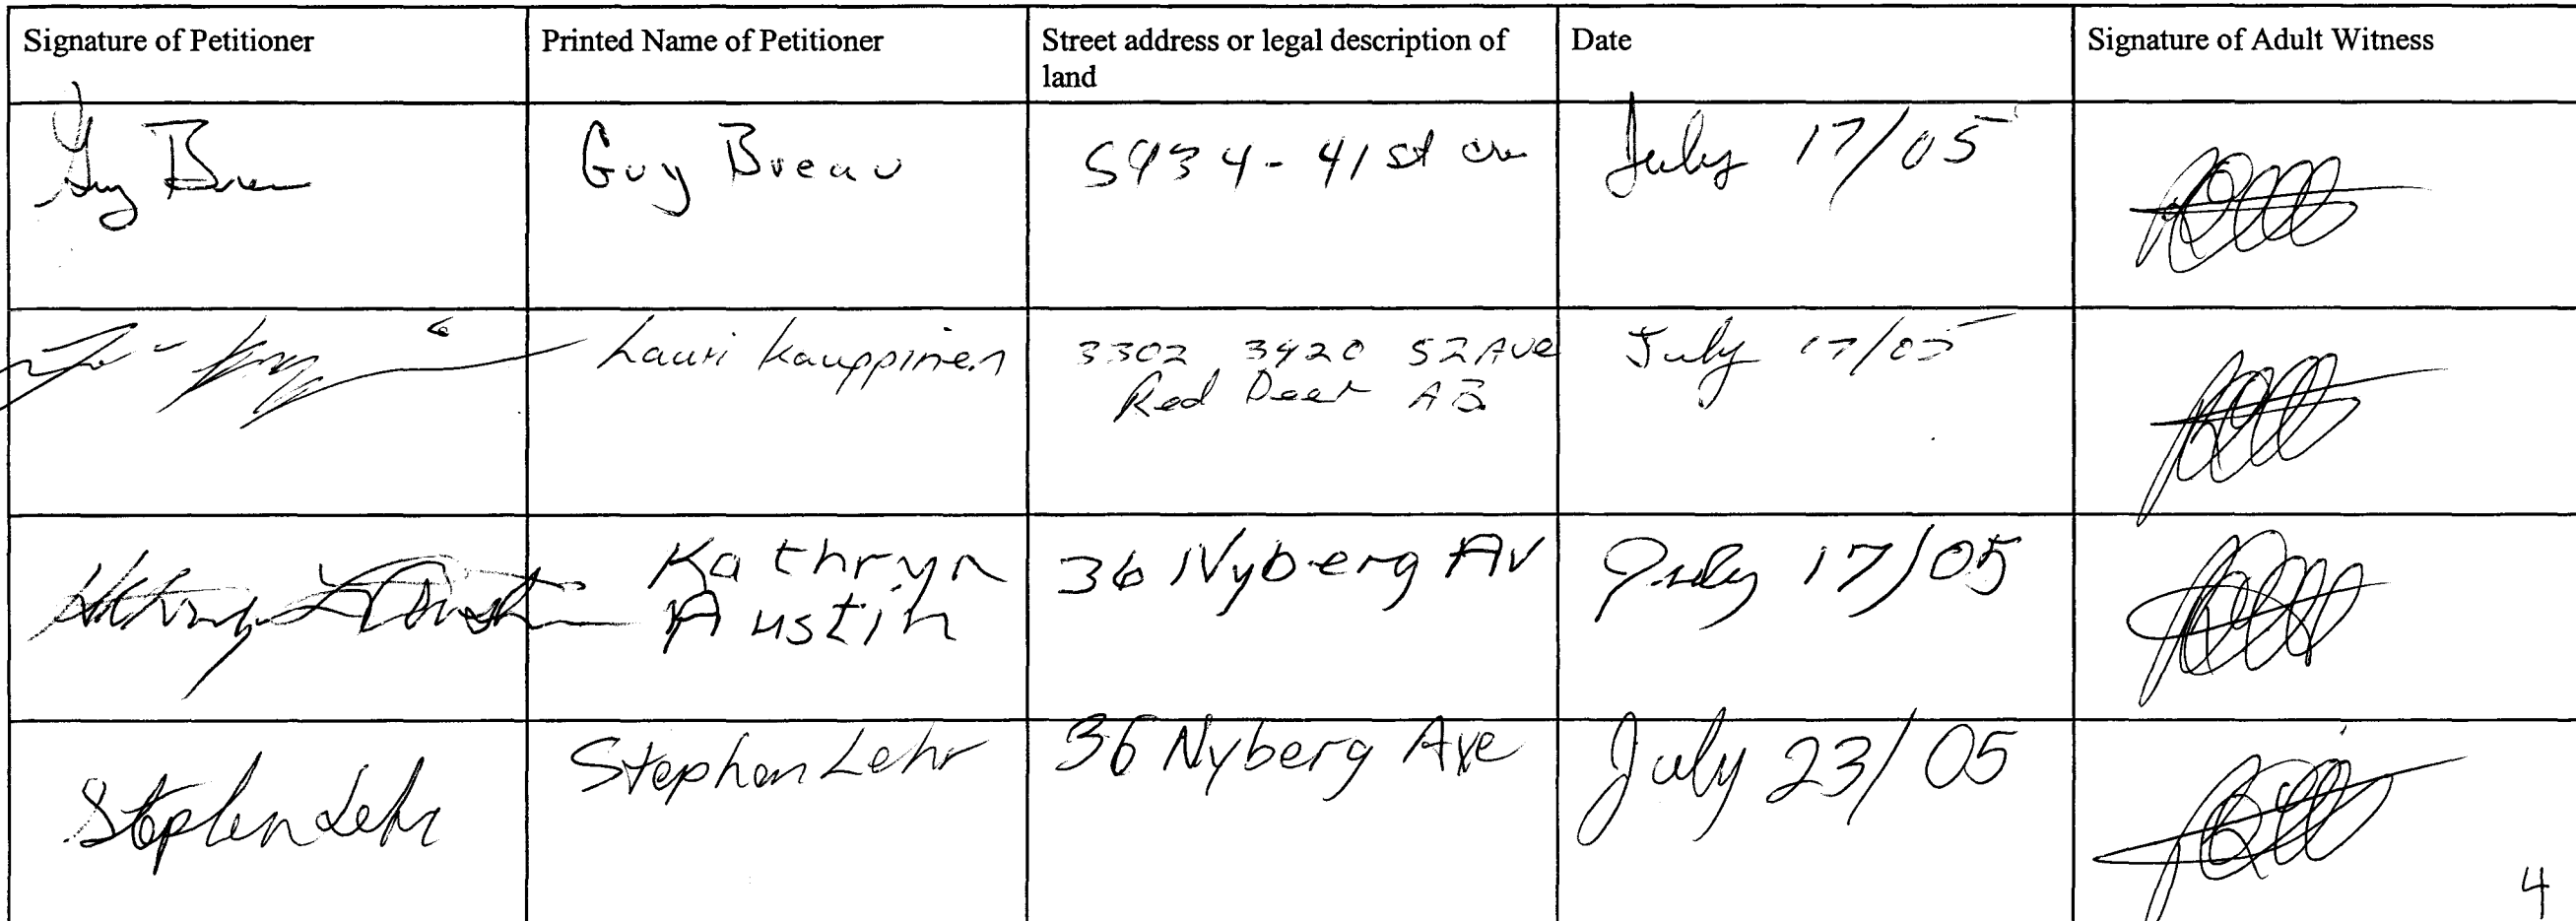 Signature of Petitioner
Printed Name of Petitioner
Street address or legal description of
land
Date
Signature of Adult Witness
Guy Breau
Guy Breau
5434-41st
July 17/05
Lauri Kauppinen
3302 3420 52 Ave
Red Deer AB
July 17/05
Kathryn
Austin
36 Nyberg Av
July 17/05
Stephen Lehr
Stephen Lehr
36 Nyberg Ave
July 23/05
4